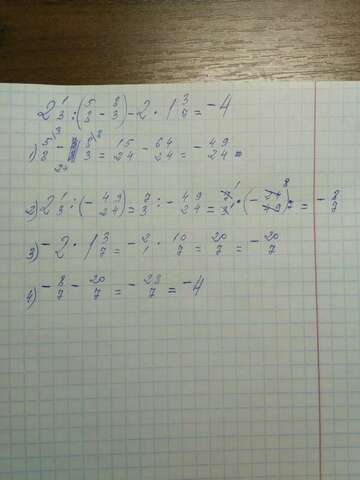 2 1/3 : (5/8 - 8/3) - 2 · 1 3/7 = -4
1) 5/8 - 8/3 = 15/24 - 64/24 = - 49/24
2) 2 1/3 : (- 49/24) = 7/3 : - 49/24 = 7/3 · (- 24/49) = - 8/7
3) - 2 · 1 3/7 = - 2/1 · 10/7 = 20/7 = - 20/7
4) - 8/7 - 20/7 = - 28/7 = -4